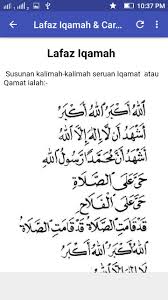 10:37 PM
Lafaz Iqamah & Car...
Lafaz Iqamah
Susunan kalimah-kalimah seruan Iqamat atau
Qamat ialah:-
اَللهُ أَكْبَرُ اَللهُ أَكْبَرُ
أَشْهَدُ أَنْ لَا إِلٰهَ إِلَّا اللهُ
أَشْهَدُ أَنَّ مُحَمَّدًا رَسُولُ اللهِ
حَيَّ عَلَى الصَّلَاةِ
حَيَّ عَلَى الْفَلَاحِ
قَدْ قَامَتِ الصَّلَاةُ قَدْ قَامَتِ الصَّلَاةُ
اَللهُ أَكْبَرُ اَللهُ أَكْبَرُ
لَا إِلٰهَ إِلَّا اللهُ